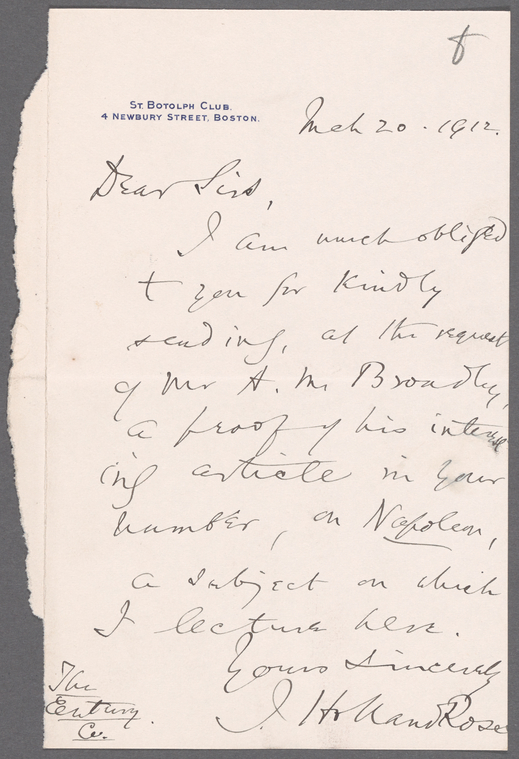 St. Botolph Club.
4 Newbury Street, Boston.
Mch 20 . 1912.
Dear Sirs,
I am much obliged
t you for kindly
sending, at the request
of Mr A. M. Broadley,
a proof of his interest
ing article in your
number, on Napoleon,
a subject on which
I lecture here.
Yours Sincerely
J. Holland Rose
The
Century
Co.